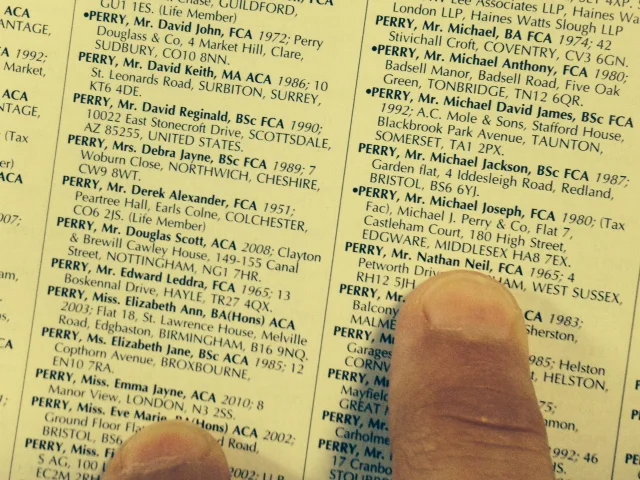 ACA
ANTAGE,
1992;
Market,
ACA
NTAGE,
(Tax
er)
ACA
007;
am,
GUILDFORD,
GU1 1ES. (Life Member)
•PERRY, Mr. David John, FCA 1972; Perry
Douglass & Co, 4 Market Hill, Clare,
SUDBURY, CO10 8NN.
PERRY, Mr. David Keith, MA ACA 1986; 10
St. Leonards Road, SURBITON, SURREY,
KT6 4DE.
PERRY, Mr. David Reginald, BSc FCA 1990;
10022 East Stonecroft Drive, SCOTTSDALE,
AZ 85255, UNITED STATES.
PERRY, Mrs. Debra Jayne, BSc FCA 1989; 7
Woburn Close, NORTHWICH, CHESHIRE,
CW9 8WT.
PERRY, Mr. Derek Alexander, FCA 1951;
Peartree Hall, Earls Colne, COLCHESTER,
CO6 2JS. (Life Member)
PERRY, Mr. Douglas Scott, ACA 2008; Clayton
& Brewill Cawley House, 149-155 Canal
Street, NOTTINGHAM, NG1 7HR.
PERRY, Mr. Edward Leddra, FCA 1965; 13
Boskennal Drive, HAYLE, TR27 4QX.
PERRY, Miss. Elizabeth Ann, BA(Hons) ACA
2003; Flat 18, St. Lawrence House, Melville
Road, Edgbaston, BIRMINGHAM, B16 9NQ.
PERRY, Ms. Elizabeth Jane, BSc ACA 1985; 12
Copthorn Avenue, BROXBOURNE,
EN10 7RA.
PERRY, Miss. Emma Jayne, ACA 2010; 8
Manor View, LONDON, N3 2SS.
PERRY, Miss. Eve Marie (Hons) ACA 2002;
Ground Floor d Road,
BRISTOL, BS6
PERRY, Miss.
S AG, 100 2002; LLP
EC2M 2RH
Lee Associates LLP, Haines Wa
London LLP, Haines Watts Slough LLP
PERRY, Mr. Michael, BA FCA 1974; 42
Stivichall Croft, COVENTRY, CV3 6GN.
•PERRY, Mr. Michael Anthony, FCA 1980;
Badsell Manor, Badsell Road, Five Oak
Green, TONBRIDGE, TN12 6QR.
•PERRY, Mr. Michael David James, BSc FCA
1992; A.C. Mole & Sons, Stafford House,
Blackbrook Park Avenue, TAUNTON,
SOMERSET, TA1 2PX.
PERRY, Mr. Michael Jackson, BSc FCA 1987;
Garden flat, 4 Iddesleigh Road, Redland,
BRISTOL, BS6 6YJ.
•PERRY, Mr. Michael Joseph, FCA 1980; (Tax
Fac), Michael J. Perry & Co, Flat 7,
Castleham Court, 180 High Street,
EDGWARE, MIDDLESEX HA8 7EX.
PERRY, Mr. Nathan Neil, FCA 1965; 4
Petworth Driv HAM, WEST SUSSEX,
RH12 5JH
PERRY, Mr. 1983;
Balcony Sherston,
MALME
PERRY, Mr. 1985; Helston
Garages HELSTON,
CORNW
PERRY, M 75;
Mayfield mmon,
GREAT M
PERRY, Mr.
Carholme
PERRY, Mr. 1992; 46
17 Cranbo
STOURBR
PE